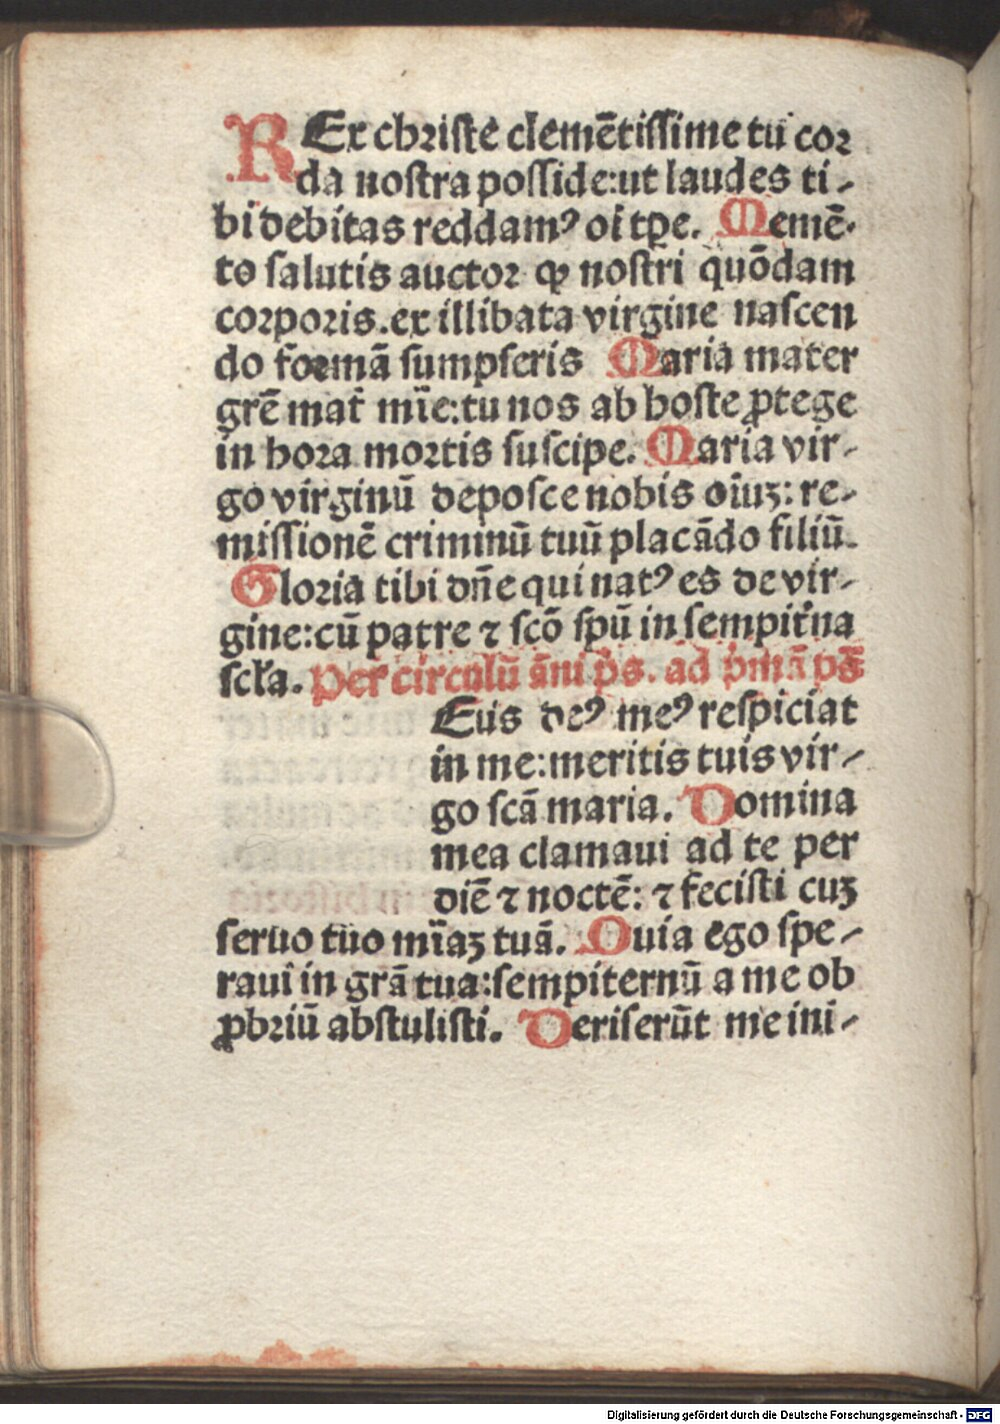 REx christe clemētissime tu coꝛ
da nostra posside:ut laudes ti-
bi debitas reddamꝰ oi tꝑe. Memē-
to salutis auctoꝛ ꝙ nostri quōdam
coꝛpoꝛis.ex illibata virgine nascen
do foꝛmā sumpseris Maria mater
grē mat̄ mīe:tu nos ab hoste ꝓtege
in hoꝛa moꝛtis suscipe. Maria vir-
go virginū deposce nobis oīuꝫ: re-
missionē criminū tuū placādo filiū.
Gloꝛia tibi dn̄e qui natꝰ es de vir-
gine:cū patre ⁊ scō spū in sempit̄na
scl̄a. Per circulū āni p̄s. ad p̄mā ps̄
Eus deꝰ meꝰ respiciat
in me:meritis tuis vir-
go scā maria. Domina
mea clamaui ad te per
diē ⁊ noctē: ⁊ fecisti cuꝫ
seruo tuo mīaꝫ tuā. Quia ego spe-
raui in grā tua:sempiternū a me ob
ꝓbriū abstulisti. Deriserūt me ini-
Digitalisierung gefördert durch die Deutsche Forschungsgemeinschaft - DFG